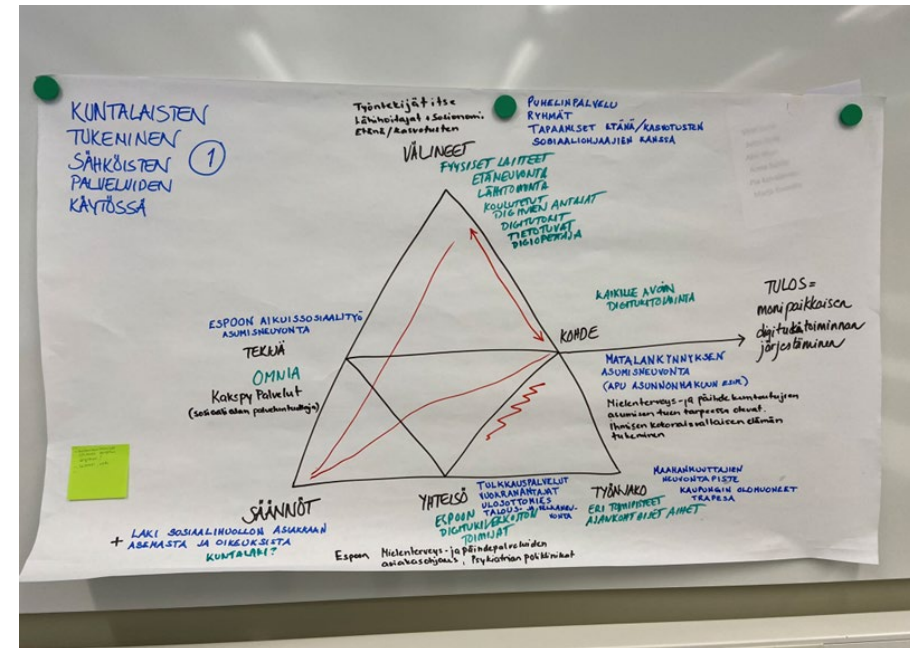 KUNTALAISTEN
TUKEMINEN
SÄHKÖISTEN
PALVELUIDEN
KÄYTÖSSÄ
1
Työntekijät itse
Lähihoitajat + Sosionomi
Etänä/kasvotusten
VÄLINEET
PUHELINPALVELU
RYHMÄT
TAPAAMISET ETÄNÄ/KASVOTUSTEN
SOSIAALIOHJAAJIEN KANSSA
FYYSISET LAITTEET
ETÄNEUVONTA
LÄHITOIMINTA
KOULUTETUT
DIGITUEN ANTAJAT
DIGITUTORIT
TIETOTUVAT
DIGIOPETTAJA
KAIKILLE AVOIN
DIGITUKITOIMINTA
KOHDE
TULOS=
monipaikkaisen
digitukitoiminnan
järjestäminen
ESPOON AIKUISSOSIAALITYÖ
ASUMISNEUVONTA
TEKIJÄ
OMNIA
Kakspy Palvelut
(sosiaalialan palveluntuottaja)
MATALANKYNNYKSEN
ASUMISNEUVONTA
(APU ASUNNONHAKUUN ESIM.)
Mielenterveys- ja päihdekuntoutujien
asumisen tuen tarpeessa olevat.
Ihmisen kokonaisvaltaisen elämän
tukeminen
SÄÄNNÖT
+ LAKI SOSIAALIHUOLLON ASIAKKAAN
ASEMASTA JA OIKEUKSISTA
KUNTALAKI?
YHTEISÖ
ESPOON
DIGITUKIVERKOSTON
TOIMIJAT
TULKKAUSPALVELUT
VUOKRANANTAJAT
ULOSOTTOMIES
TALOUS- JA VELKANEU-
VONTA
Espoon Mielenterveys- ja päihdepalveluiden
asiakasohjaus, Psykiatrian poliklinikat
TYÖNJAKO
ERI TOIMIPISTEET
AJANKOHTAISET AIHEET
MAAHANMUUTTAJIEN
NEUVONTAPISTE
KAUPUNGIN OLOHUONEET
TRAPESA